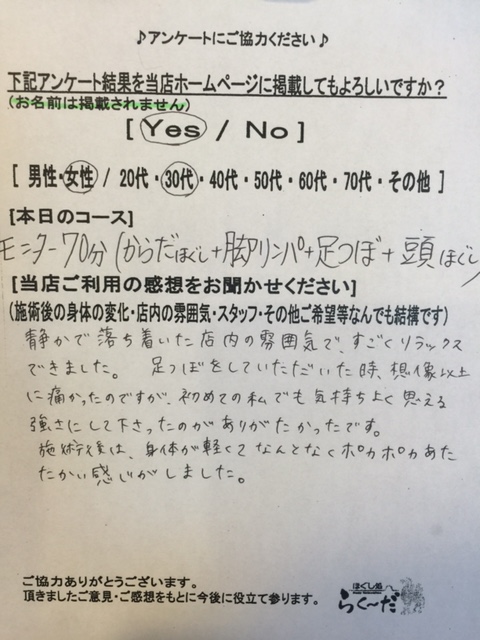 ♪アンケートにご協力ください♪
下記アンケート結果を当店ホームページに掲載してもよろしいですか？
(お名前は掲載されません)
[ Yes / No ]
[ 男性・女性 / 20代・30代・40代・50代・60代・70代・その他 ]
[本日のコース]
モニター70分(からだほぐし+脚リンパ+足つぼ+頭ほぐし)
[当店ご利用の感想をお聞かせください]
(施術後の身体の変化・店内の雰囲気・スタッフ・その他ご希望等なんでも結構です)
静かで落ち着いた店内の雰囲気で、すごくリラックス
できました。 足つぼをしていただいた時、想像以上
に痛かったのですが、初めての私でも気持ち良く思える
強さにして下さったのがありがたかったです。
施術後は、身体が軽くてなんとなくポカポカあた
たかい感じがしました。
ご協力ありがとうございます。
頂きましたご意見・ご感想をもとに今後に役立て参ります。
ほぐし処
らく〜だ